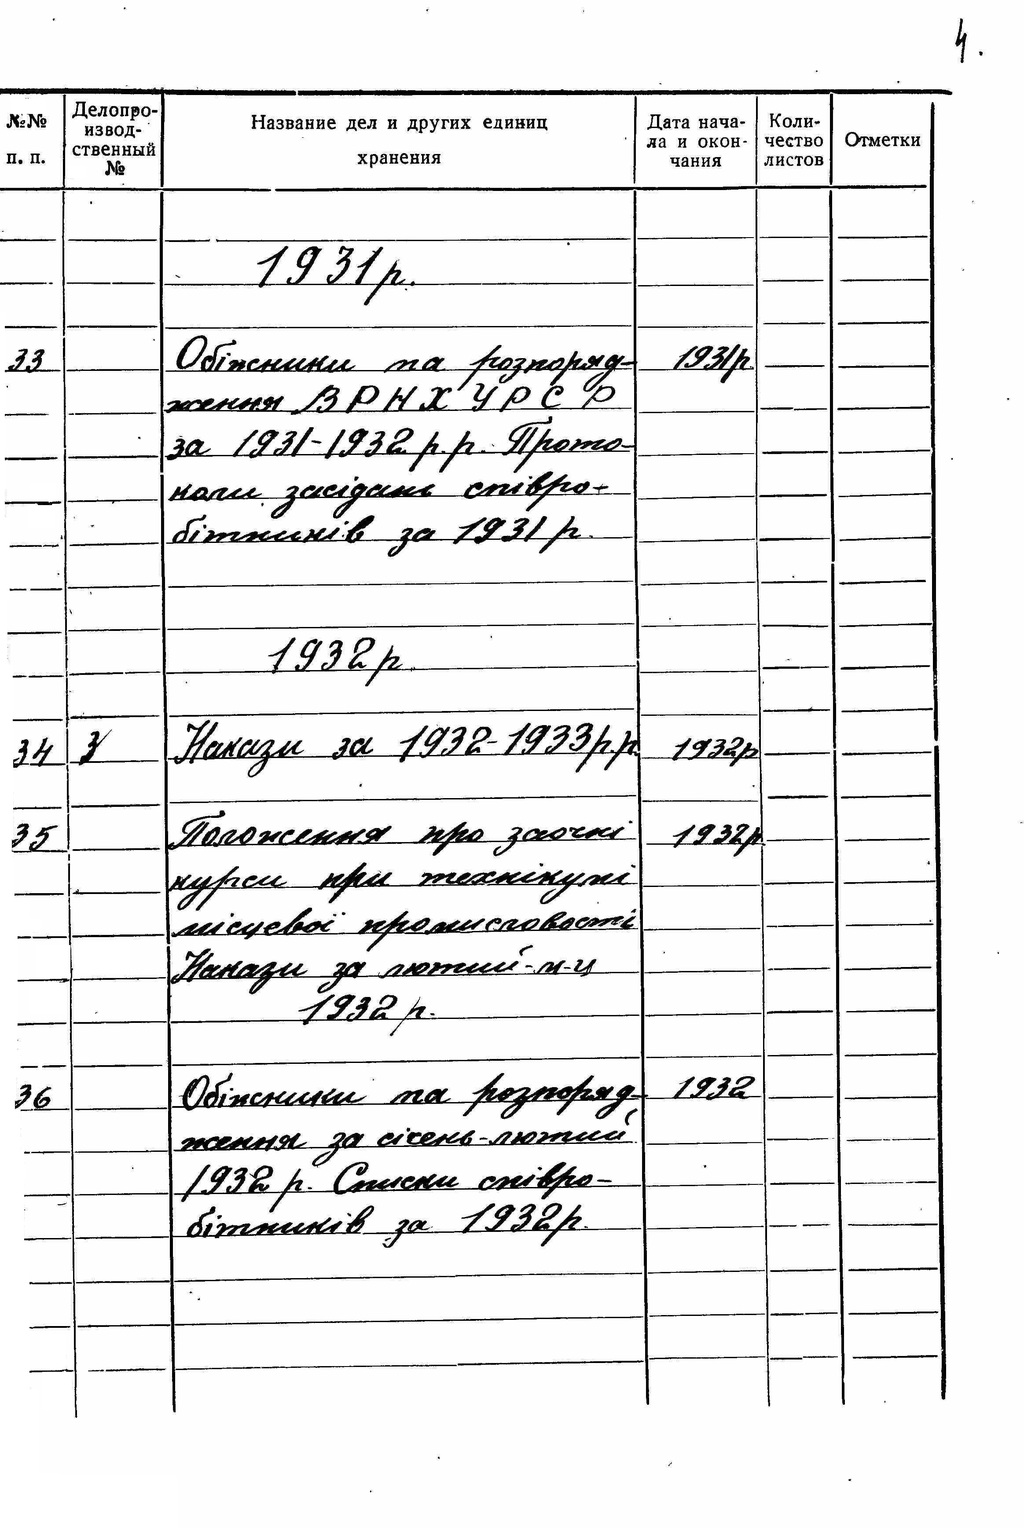 4.
№№ п. п.
Делопро-
извод-
ственный
№
Название дел и других единиц
хранения
Дата нача-
ла и окон-
чания
Коли-
чество
листов
Отметки
1931 р.
33 Обіжники та розпоряд- 1931 р.
ження ВРНХ УРСР
за 1931-1932 р.р. Прото-
коли засідань співро-
бітників за 1931 р.
1932 р.
34 3 Накази за 1932-1933 р.р. 1932 р
35 Положення про заочні 1932 р.
курси при технікумі
місцевої промисловости
Накази за лютий м-ц
1932 р.
36 Обіжники та розпоряд- 1932
ження за січень-лютий
1932 р. Списки співро-
бітників за 1932 р.